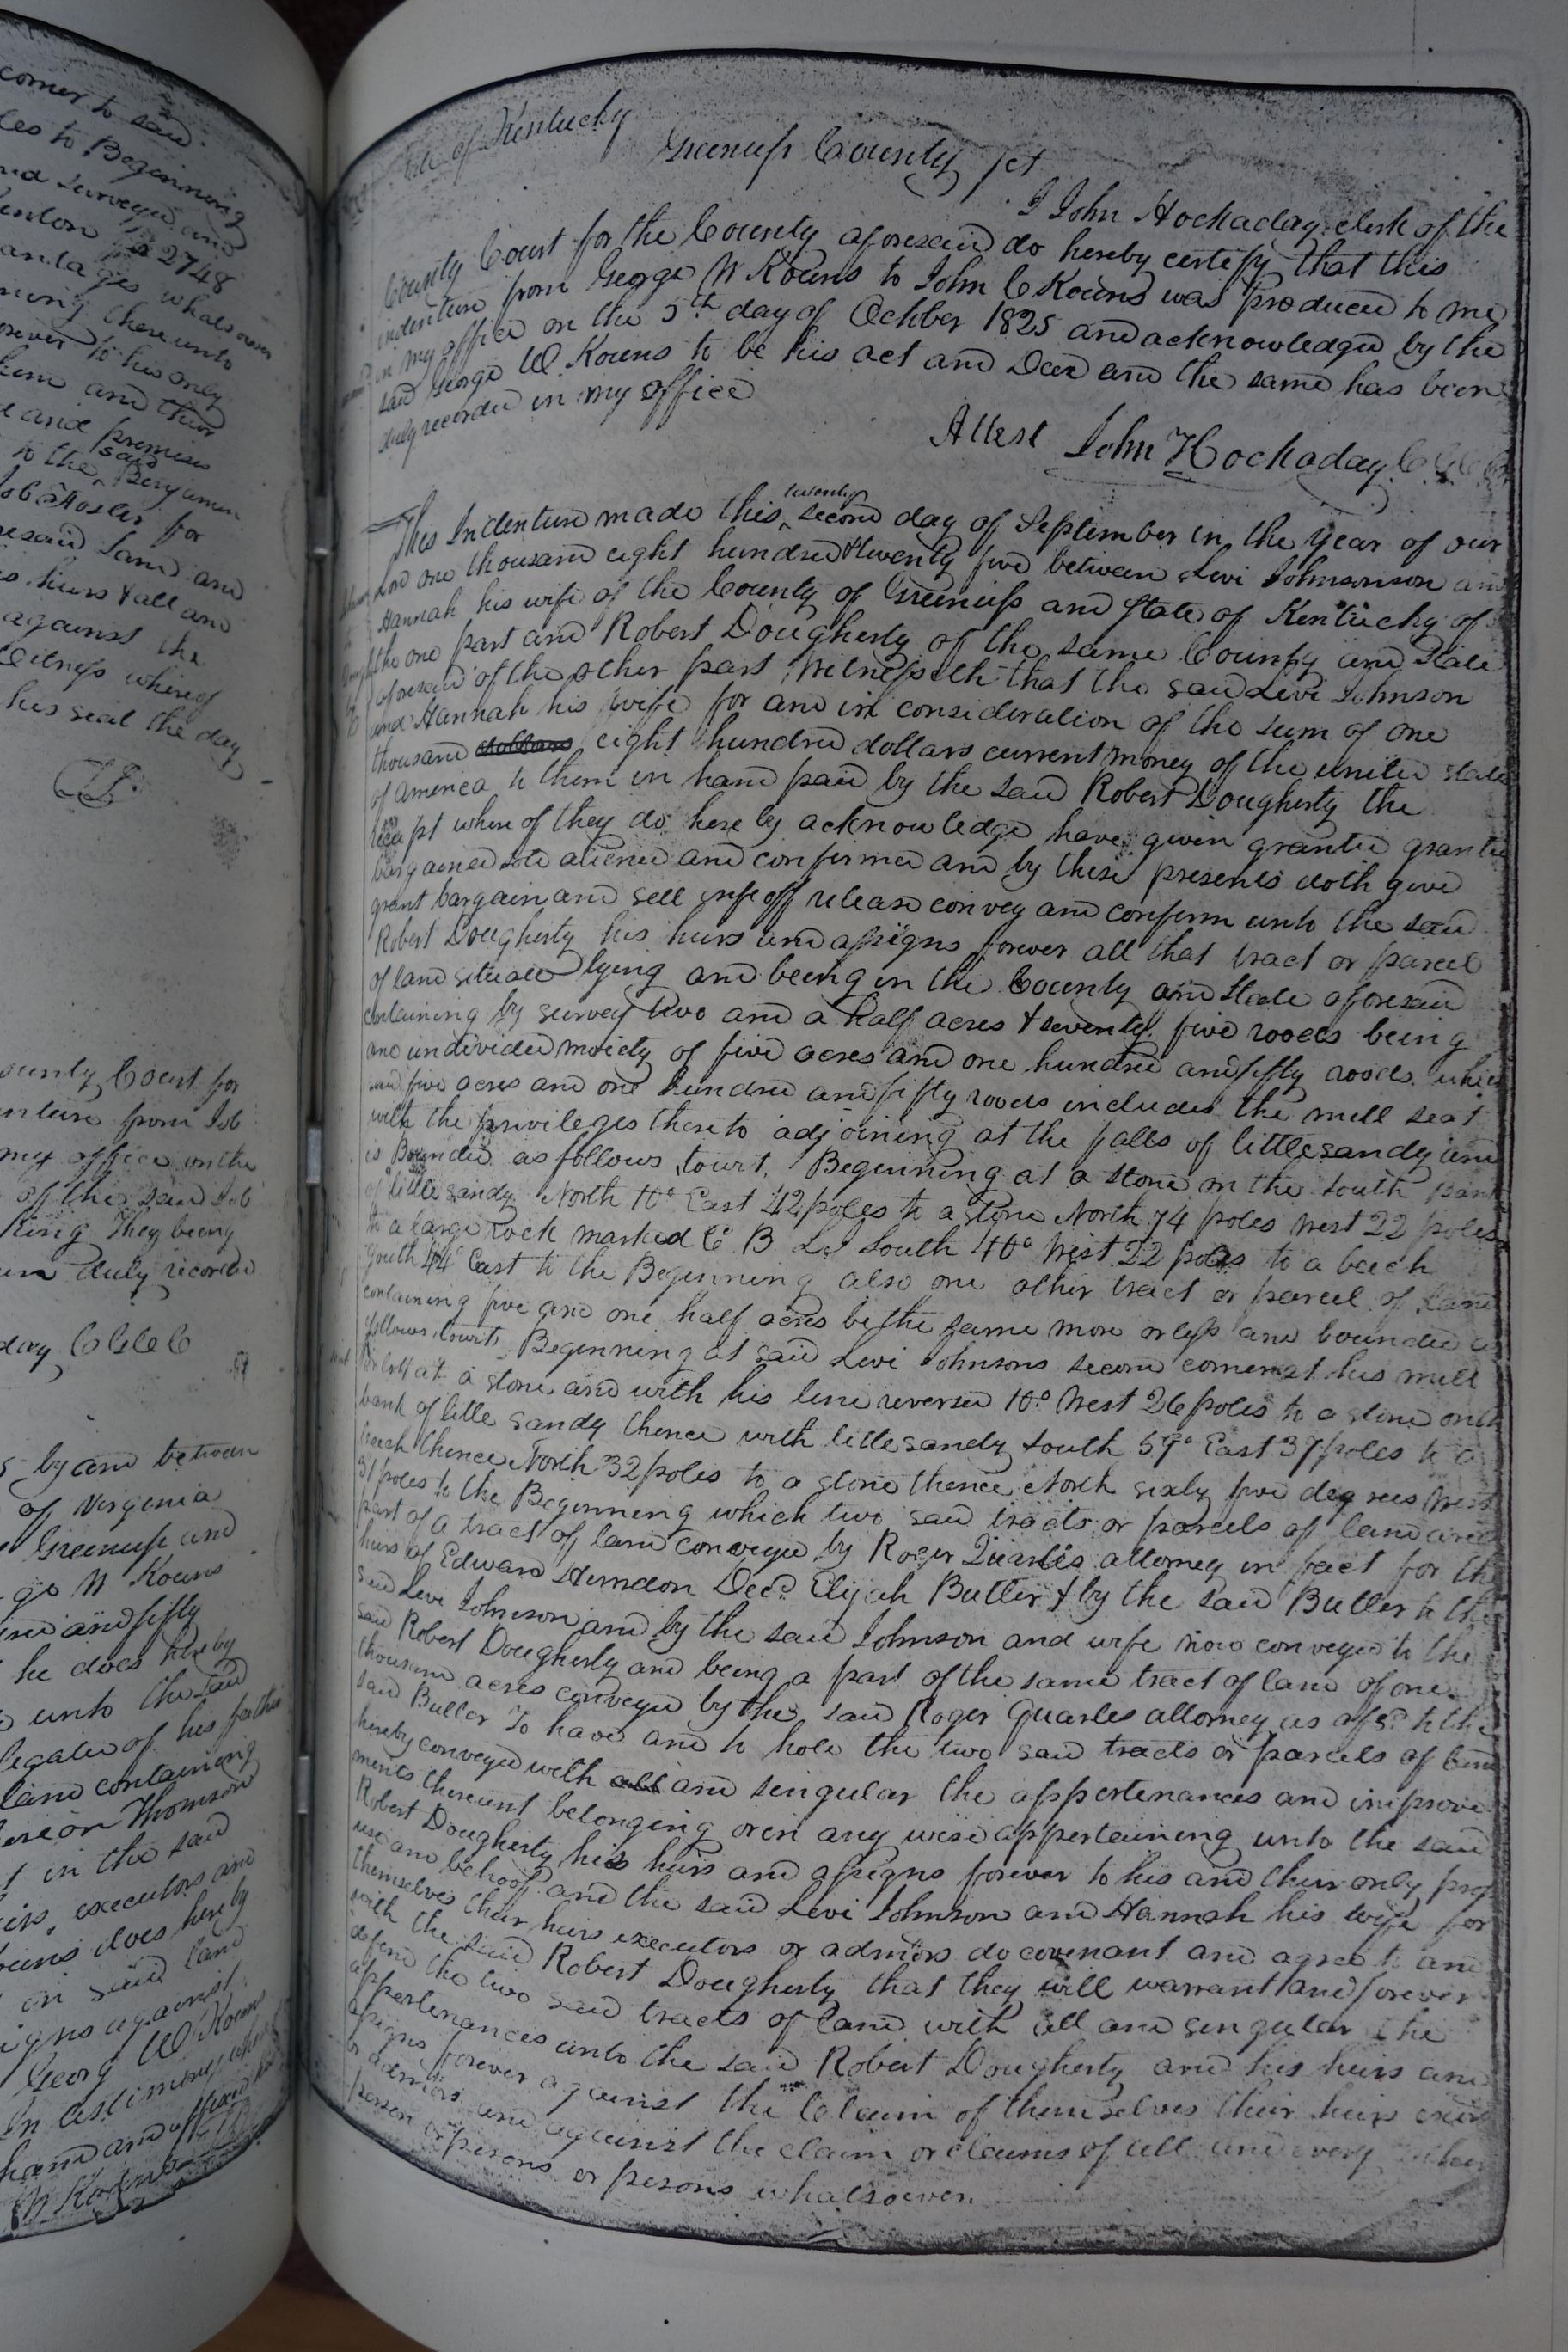 corner to said
les to Beginning
and surveyed and
2748
antages whatsoever
ning there unto
orever to his only
hem and their
and premises
to the said Benjamin
Job Hosler for
resaid Land and
s heirs & all and
against the
Witness whereof
his seal the day
ounty Court for
nture from Job
my office on the
of the said Job
King They being
en duly recorded
day C G C C
s by and between
of Virginia
Greenup and
ge W Kouns
and fifty
he does hereby
unto the said
legatee of his father
land containing
Thomson
t in the said
executors and
ouns does hereby
on said land
igns against
Georg W Kouns
In testimony where
hand and affixed his
W Kouns
ate of Kentucky
Greenup County sct
I John Hockaday clerk of the
County Court for the County aforesaid do hereby certify that this
indenture from George W Kouns to John C Kouns was produced to me
in my office on the 5th day of October 1825 and acknowledged by the
said George W. Kouns to be his act and Deed and the same has been
duly recorded in my office
Attest John Hockaday C G C C
This Indenture made this twenty second day of September in the year of our
Lord one thousand eight hundred & twenty five between Levi Johnsonson and
Hannah his wife of the County of Greenup and State of Kentucky of
the one part and Robert Dougherty of the same County and State
aforesaid of the other part Witnesseth that the said Levi Johnson
and Hannah his wife for and in consideration of the sum of one
thousand dollars eight hundred dollars current money of the united states
of america to them in hand paid by the said Robert Dougherty the
receipt where of they do here by acknowledge have given granted granted
bargained sold aliened and confirmed and by these presents doth give
grant bargain and sell infeoff release convey and confirm unto the said
Robert Dougherty his heirs and assigns forever all that tract or parcel
of land situate lying and being in the County and State aforesaid
containing by survey two and a half acres & seventy five roods being
one undivided moiety of five acres and one hundred and fifty roods which
said five acres and one hundred and fifty roods includes the mill seat
with the privileges thereto adjoining at the falls of little sandy and
is Bounded as follows towit, Beginning at a stone on the South Bank
of little sandy North 10° East 42 poles to a stone North 74 poles West 22 poles
to a large rock marked C B L J South 40° West 22 poles to a beech
South 44° East to the Beginning also one other tract or parcel of land
containing five and one half acres be the same more or less and bounded as
follows, towit, Beginning at said Levi Johnsons second corner at his mill
at a stone and with his line reversed 10° West 26 poles to a stone on the
bank of little sandy thence with little sandy South 59° East 37 poles to a
beech thence North 32 poles to a stone thence North sixty five degrees West
31 poles to the Beginning which two said tracts or parcels of land are
part of a tract of land conveyed by Roger Quarles attorney in fact for the
heirs of Edward Herndon Decd. Elijah Butler & by the said Butler to the
said Levi Johnson and by the said Johnson and wife now conveyed to the
said Robert Dougherty and being a part of the same tract of land of one
thousand acres conveyed by the said Roger Quarles attorney as afsd. to the
said Butler To have and to hold the two said tracts or parcels of land
hereby conveyed with all and singular the appertenances and improve
ments thereunt belonging or in any wise appertaining unto the said
Robert Dougherty his heirs and assigns forever to his and their only prop
use and behoof and the said Levi Johnson and Hannah his wife for
themselves their heirs executors or admors do covenant and agree to and
with the said Robert Dougherty that they will warrant and forever
defend the two said tracts of land with all and singular the
appertenances unto the said Robert Dougherty and his heirs and
assigns forever against the Claim of themselves their heirs exers
or admors and against the claim or claims of all and every other
person or persons or persons whatsoever.